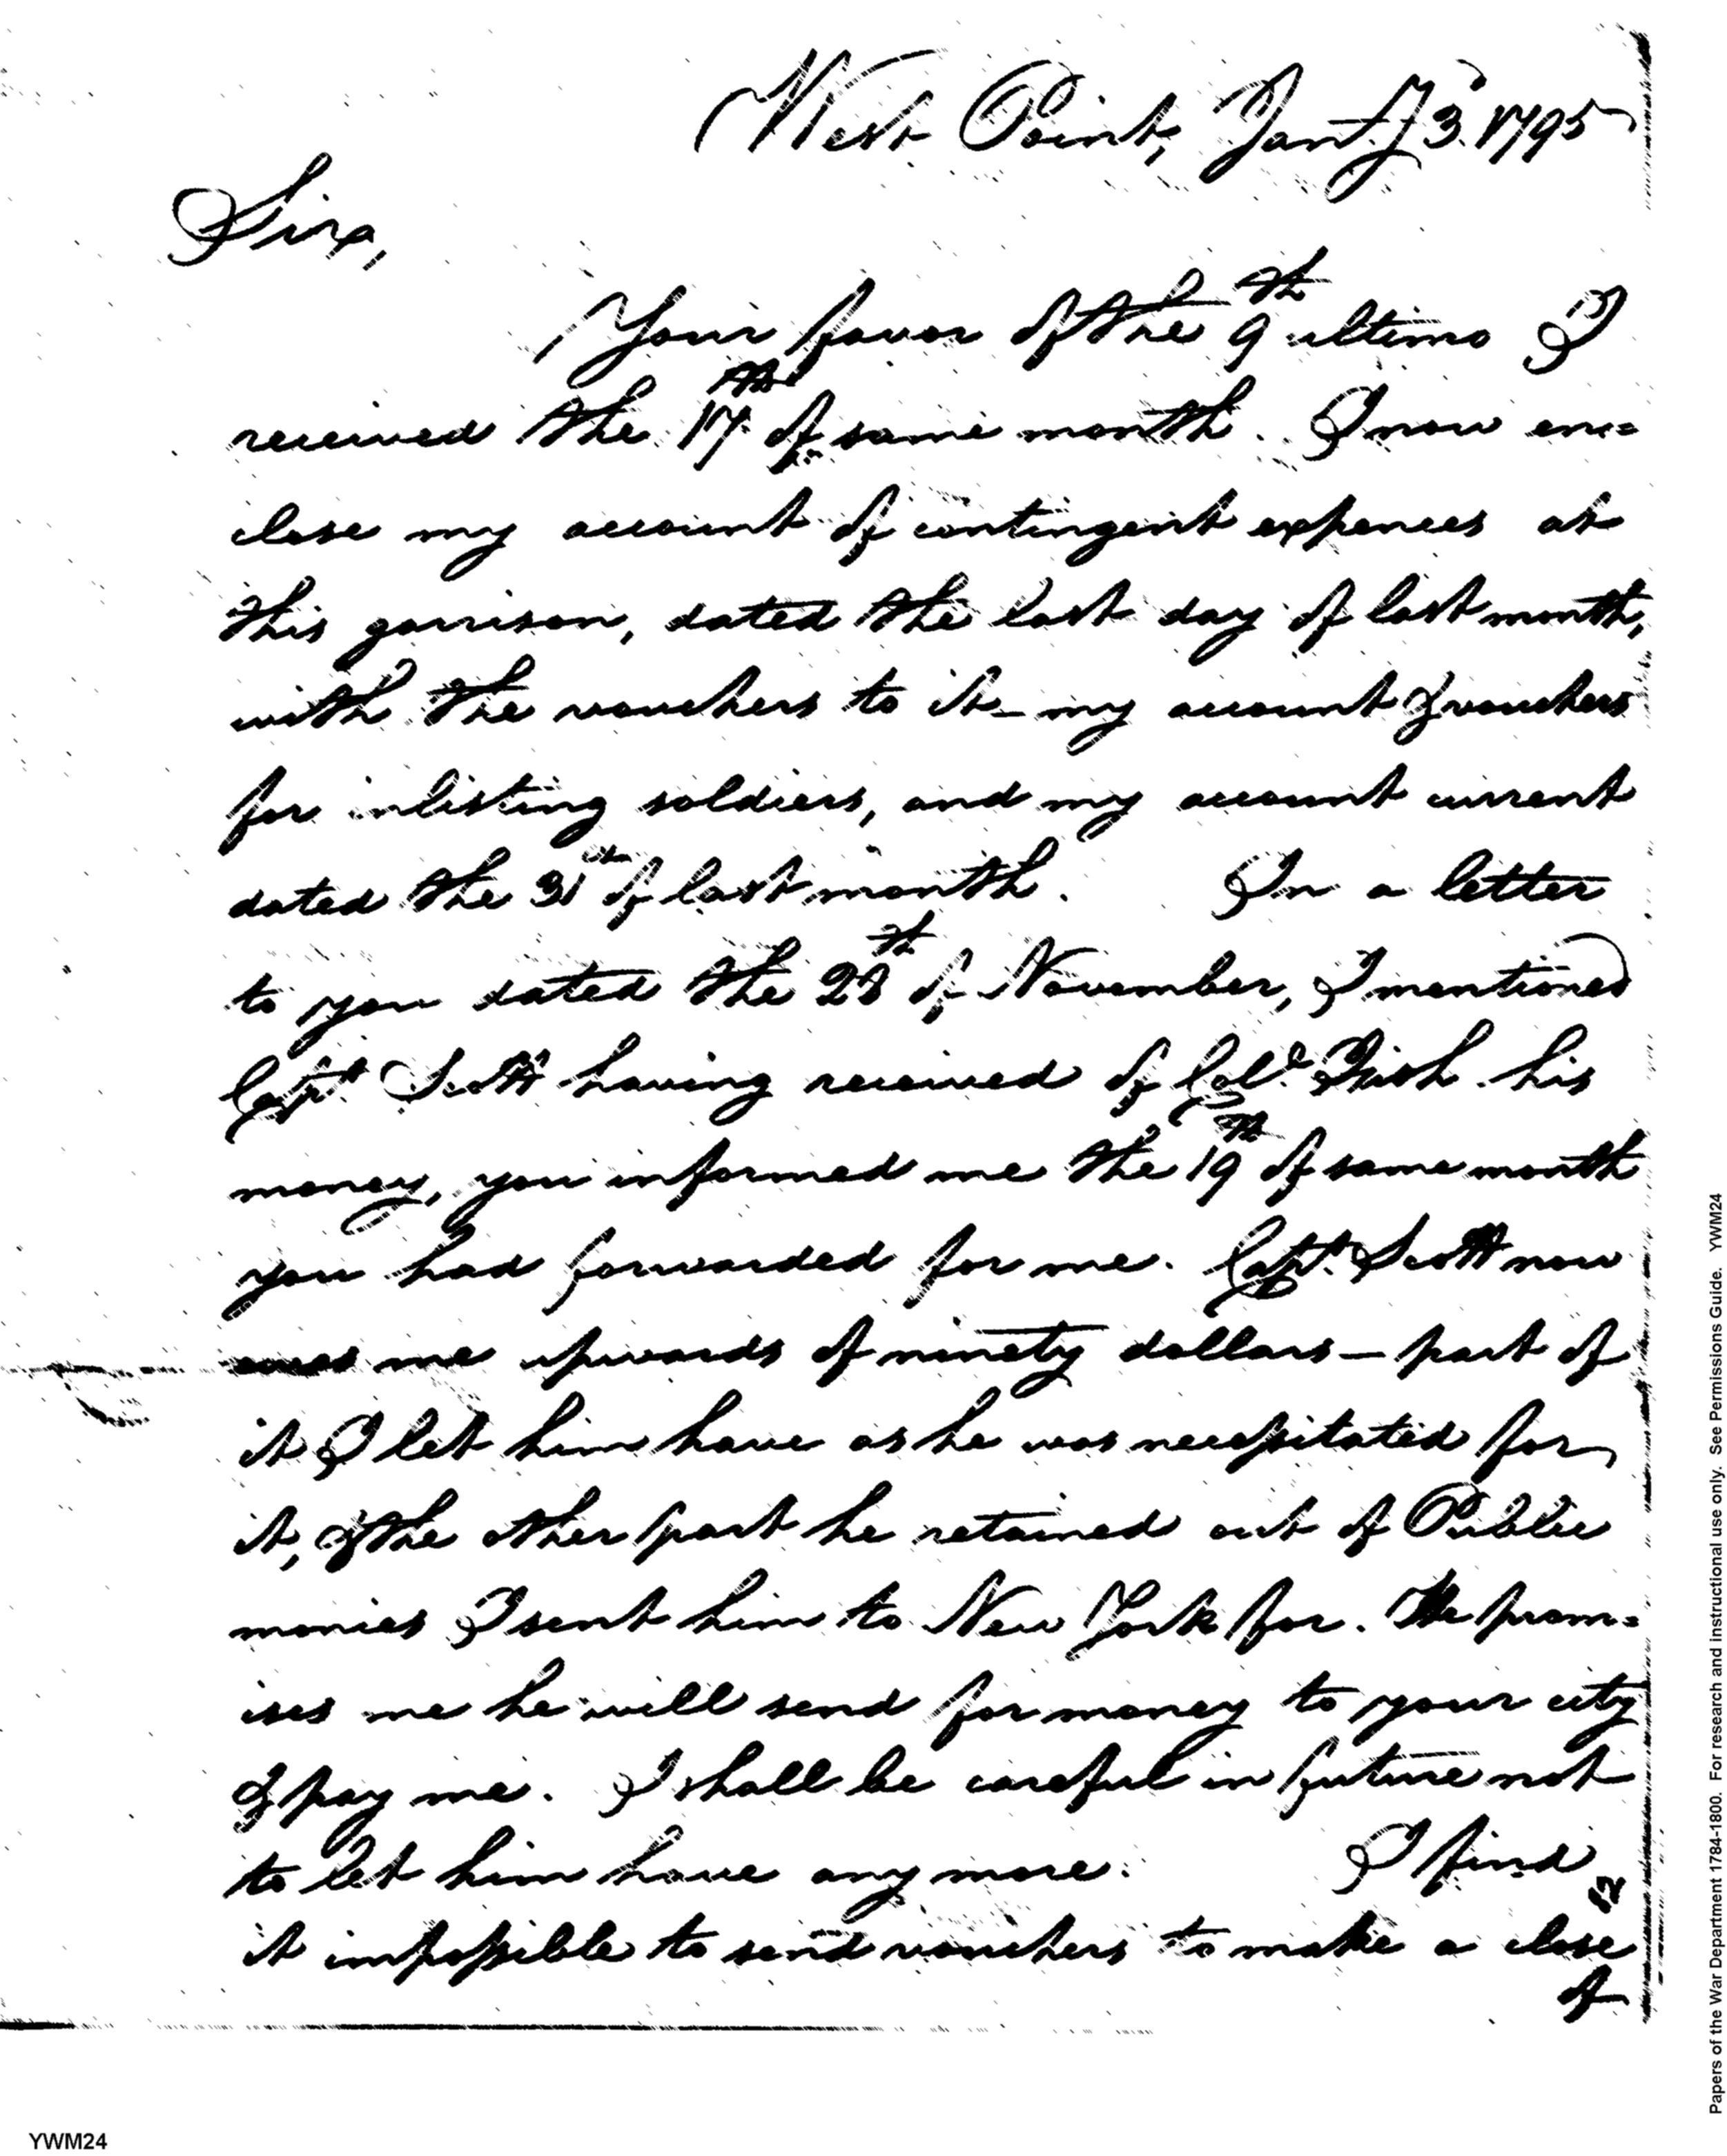 West Point, Jany 3d 1795
Sir,
Your favor of the 9th ultimo I
received the 17th of same month. I now en=
close my account of contingent expences at
this garrison, dated the last day of last month,
with the vouchers to it – my account & vouchers
for inlisting soldiers, and my account current
dated the 31st of last month. In a letter
to you dated the 28th of November, I mentioned
Capt. Scott having received of Colo. Fish his
money, you informed me the 19th of same month
you had forwarded for me. Capt. Scott now
owes me upwards of ninety dollars – part of
it I let him have as he was necessitated for
it, & the other part he retained out of Public
monies I sent him to New York for. He prom=
ises me he will send for money to your city
& pay me. I shall be careful in future not
to let him have any more. I find
it impossible to send vouchers to make a close
of
12
YWM24
Papers of the War Department 1784-1800. For research and instructional use only. See Permissions Guide. YWM24